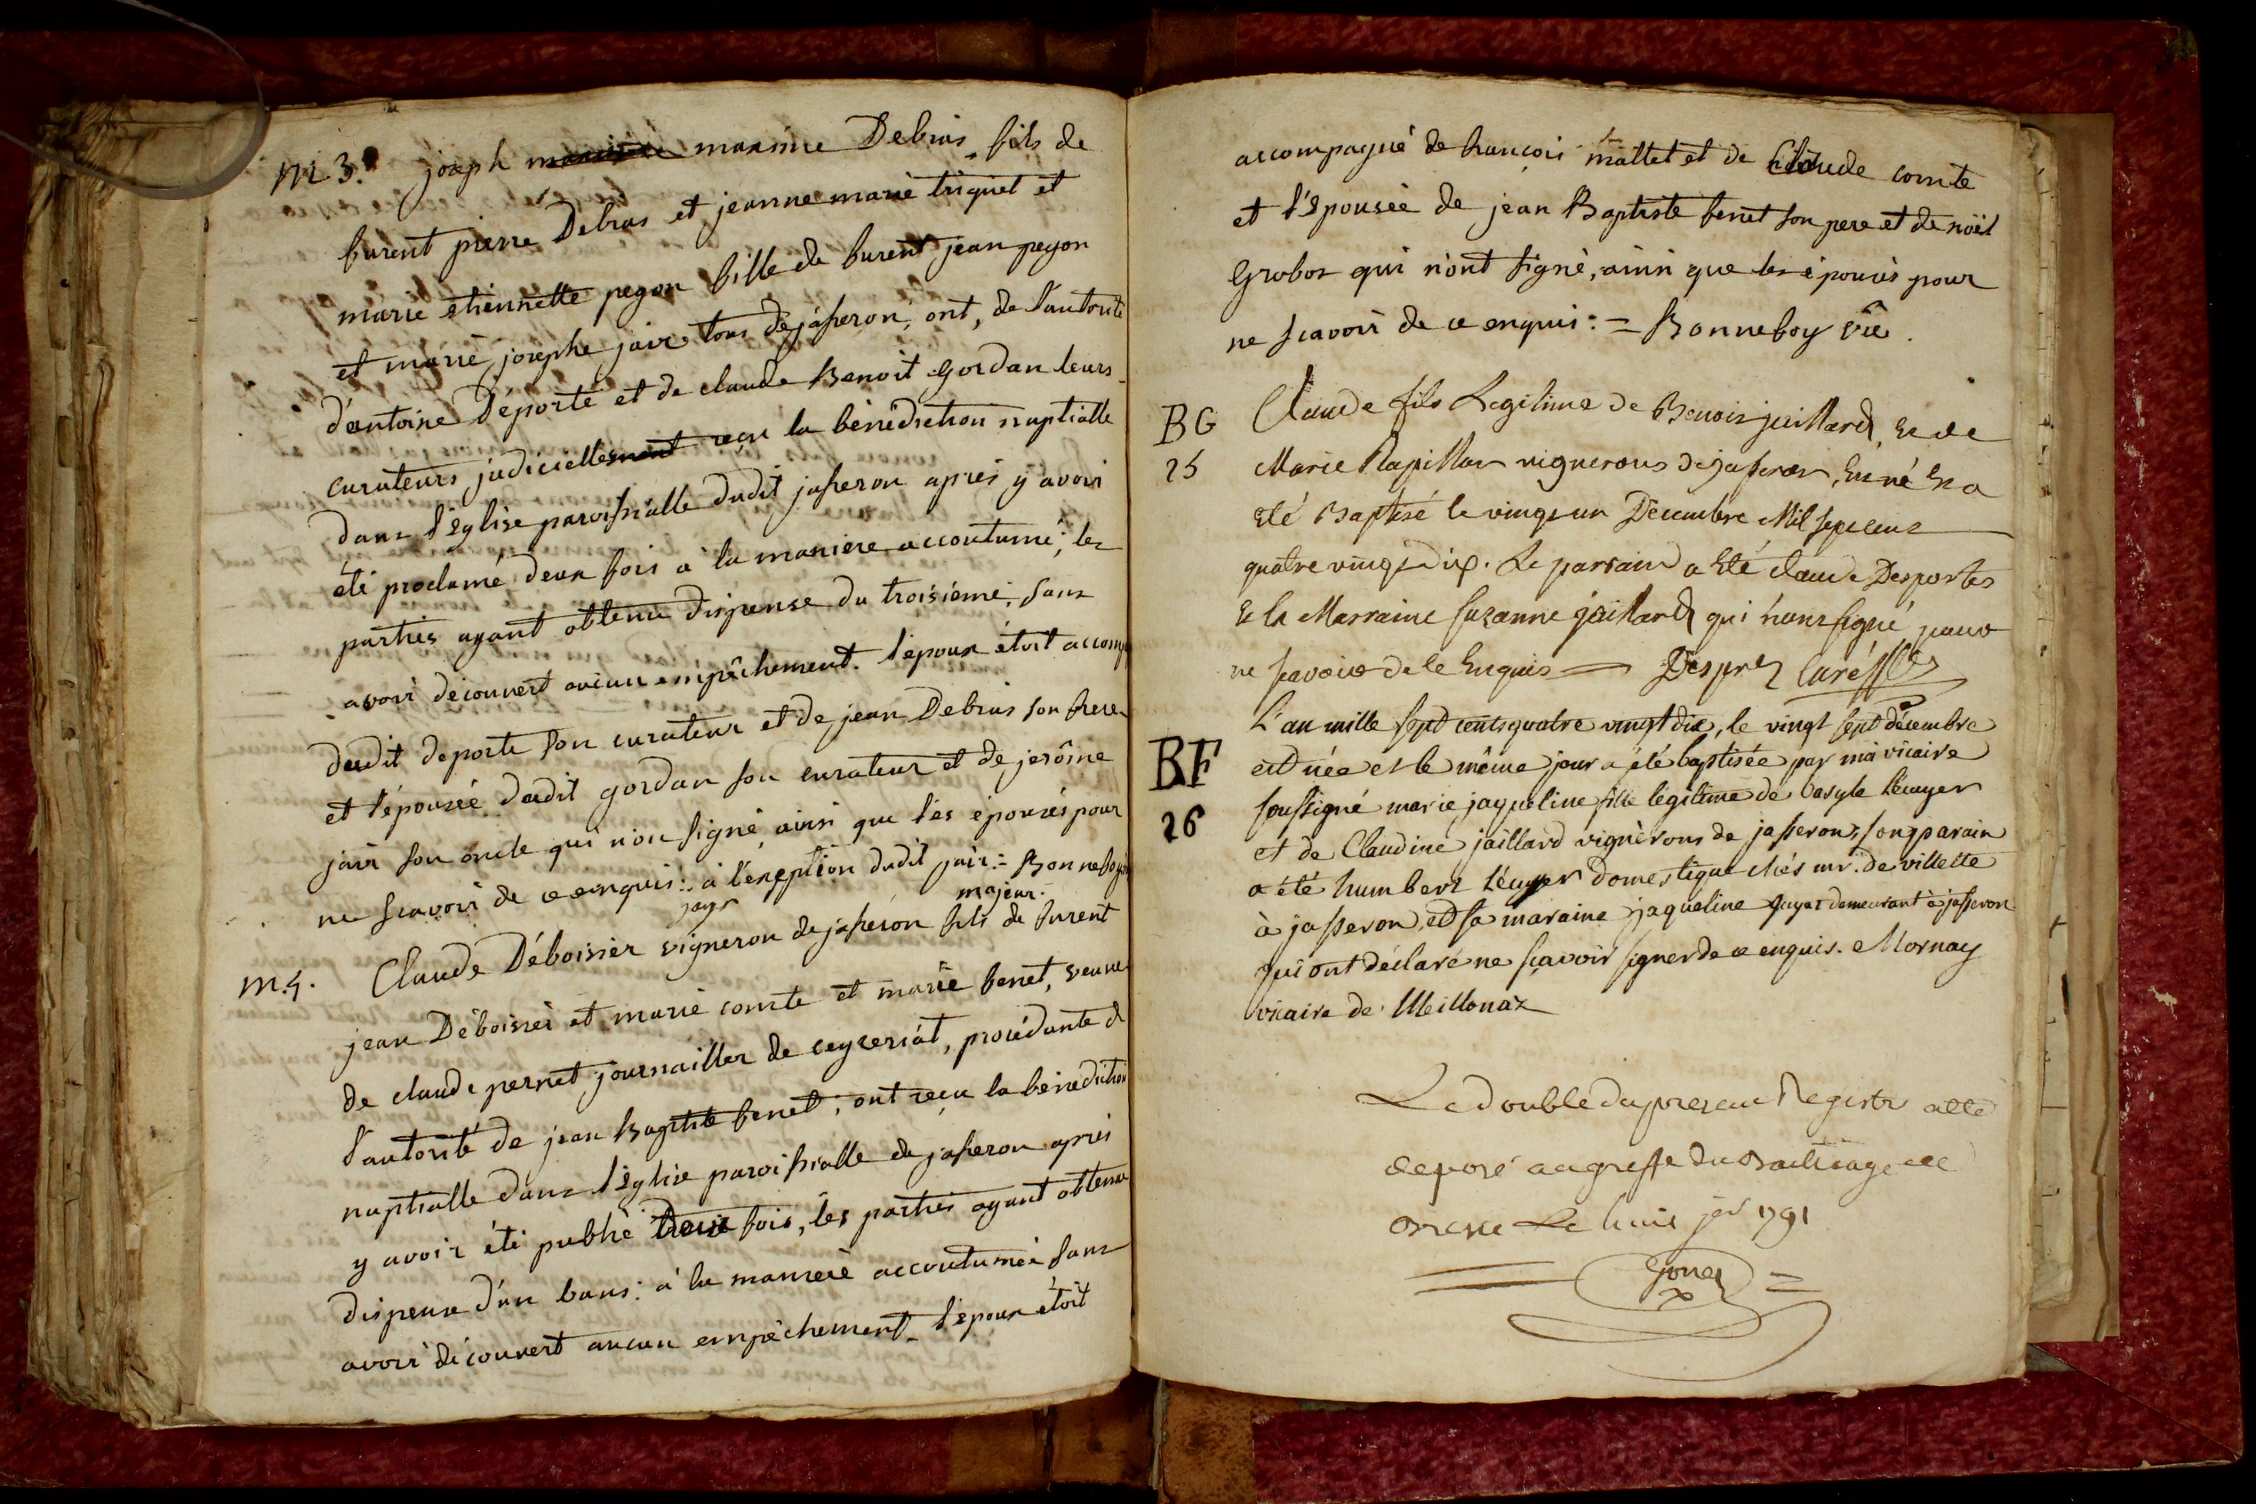 M 3. joseph maxime Debias fils de
furent pierre Debias et jeanne marie triquet et
marie etiennette pegon fille de furent jean pegon
et marie josephe jair tous de jasseron, ont, de l'autorité
d'antoine Déporte et de claude Benoit Gordan leurs
curateurs judiciellement reçu la bénédiction nuptialle
dans l'Eglise paroissialle dudit jasseron après y avoir
été proclamé deux fois à la maniere accoutumé; les
parties ayant obtenu dispense du troisième, sans
avoir découvert aucun empêchement. l'époux étoit accomp
dudit deporte son curateur et de jean Debias son frere
et l'épousée dudit gordan son curateur et de jerôme
jair son oncle qui n'on signé ainsi que les épousés pour
ne scavoir de ce enquis: à l'exception dudit jair: = Bonnefoy
jayr majeur.
M.4. Claude Déboissier vigneron de jasseron fils de furent
jean Déboissier et marie comte et marie benet, veuve
de claude pernet journaillier de ceyzeriat, procédante d
l'autorité de jean Baptiste benet; ont reçu la bénédiction
nuptialle dans l'Eglise paroissialle de jasseron après
y avoir été publié deux fois, les parties ayant obtenu
dispense d'un bans: à la maniere accoutumée sans
avoir découvert aucun empêchement. l'époux étoit
accompagné de françois mallet et de Claude comte
et l'épousée de jean Baptiste benet son pere et de noël
Grobox qui n'ont signé, ainsi que les épousés pour
ne scavoir de ce enquis: = Bonnefoy vic.
BG Claude fils Legitime de Benois jaillard, Et de
25 Marie Rapillon vignerons de jasseron, Est né Et a
Eté Baptisé le vingt un Décembre Mil sept cent
quatre vingt dix. Le parrain a Eté Claude Desportes
Et la Marraine suzanne jaillard qui n'ont signé pour
ne scavoir de ce Enquis — Desprez Curé
L'an mille sept cents quatre vingt dix, le vingt sept décembre
BF est née et le même jour a été baptisée par moi vicaire
26 soussigné marie jaqueline fille légitime de basyle lécuyer
et de Claudine jaillard vignerons de jasseron, son parain
a été humbert lécuyer domestique chés mr. de villette
à jasseron, et sa maraine jaqueline guyer demeurant à jasseron
qui ont déclaré ne sçavoir signer de ce enquis. Mornay
vicaire de Meillonaz
Le double du present Registre a eté
deposé au greffe du Bailliage de
Bresse Le huit jer 1791